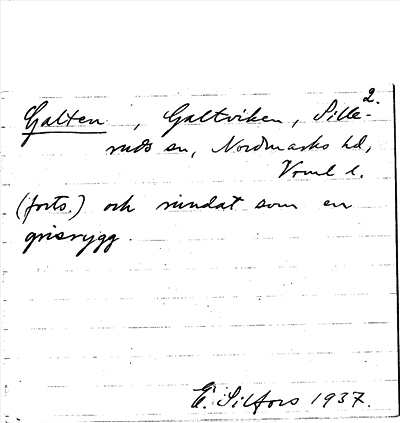 2.
Galten, Galtviken, Sille-
ruds sn, Nordmarks hd,
Vrml l.
(forts.) och rundat som en
grisrygg.
E. Silfors 1937.